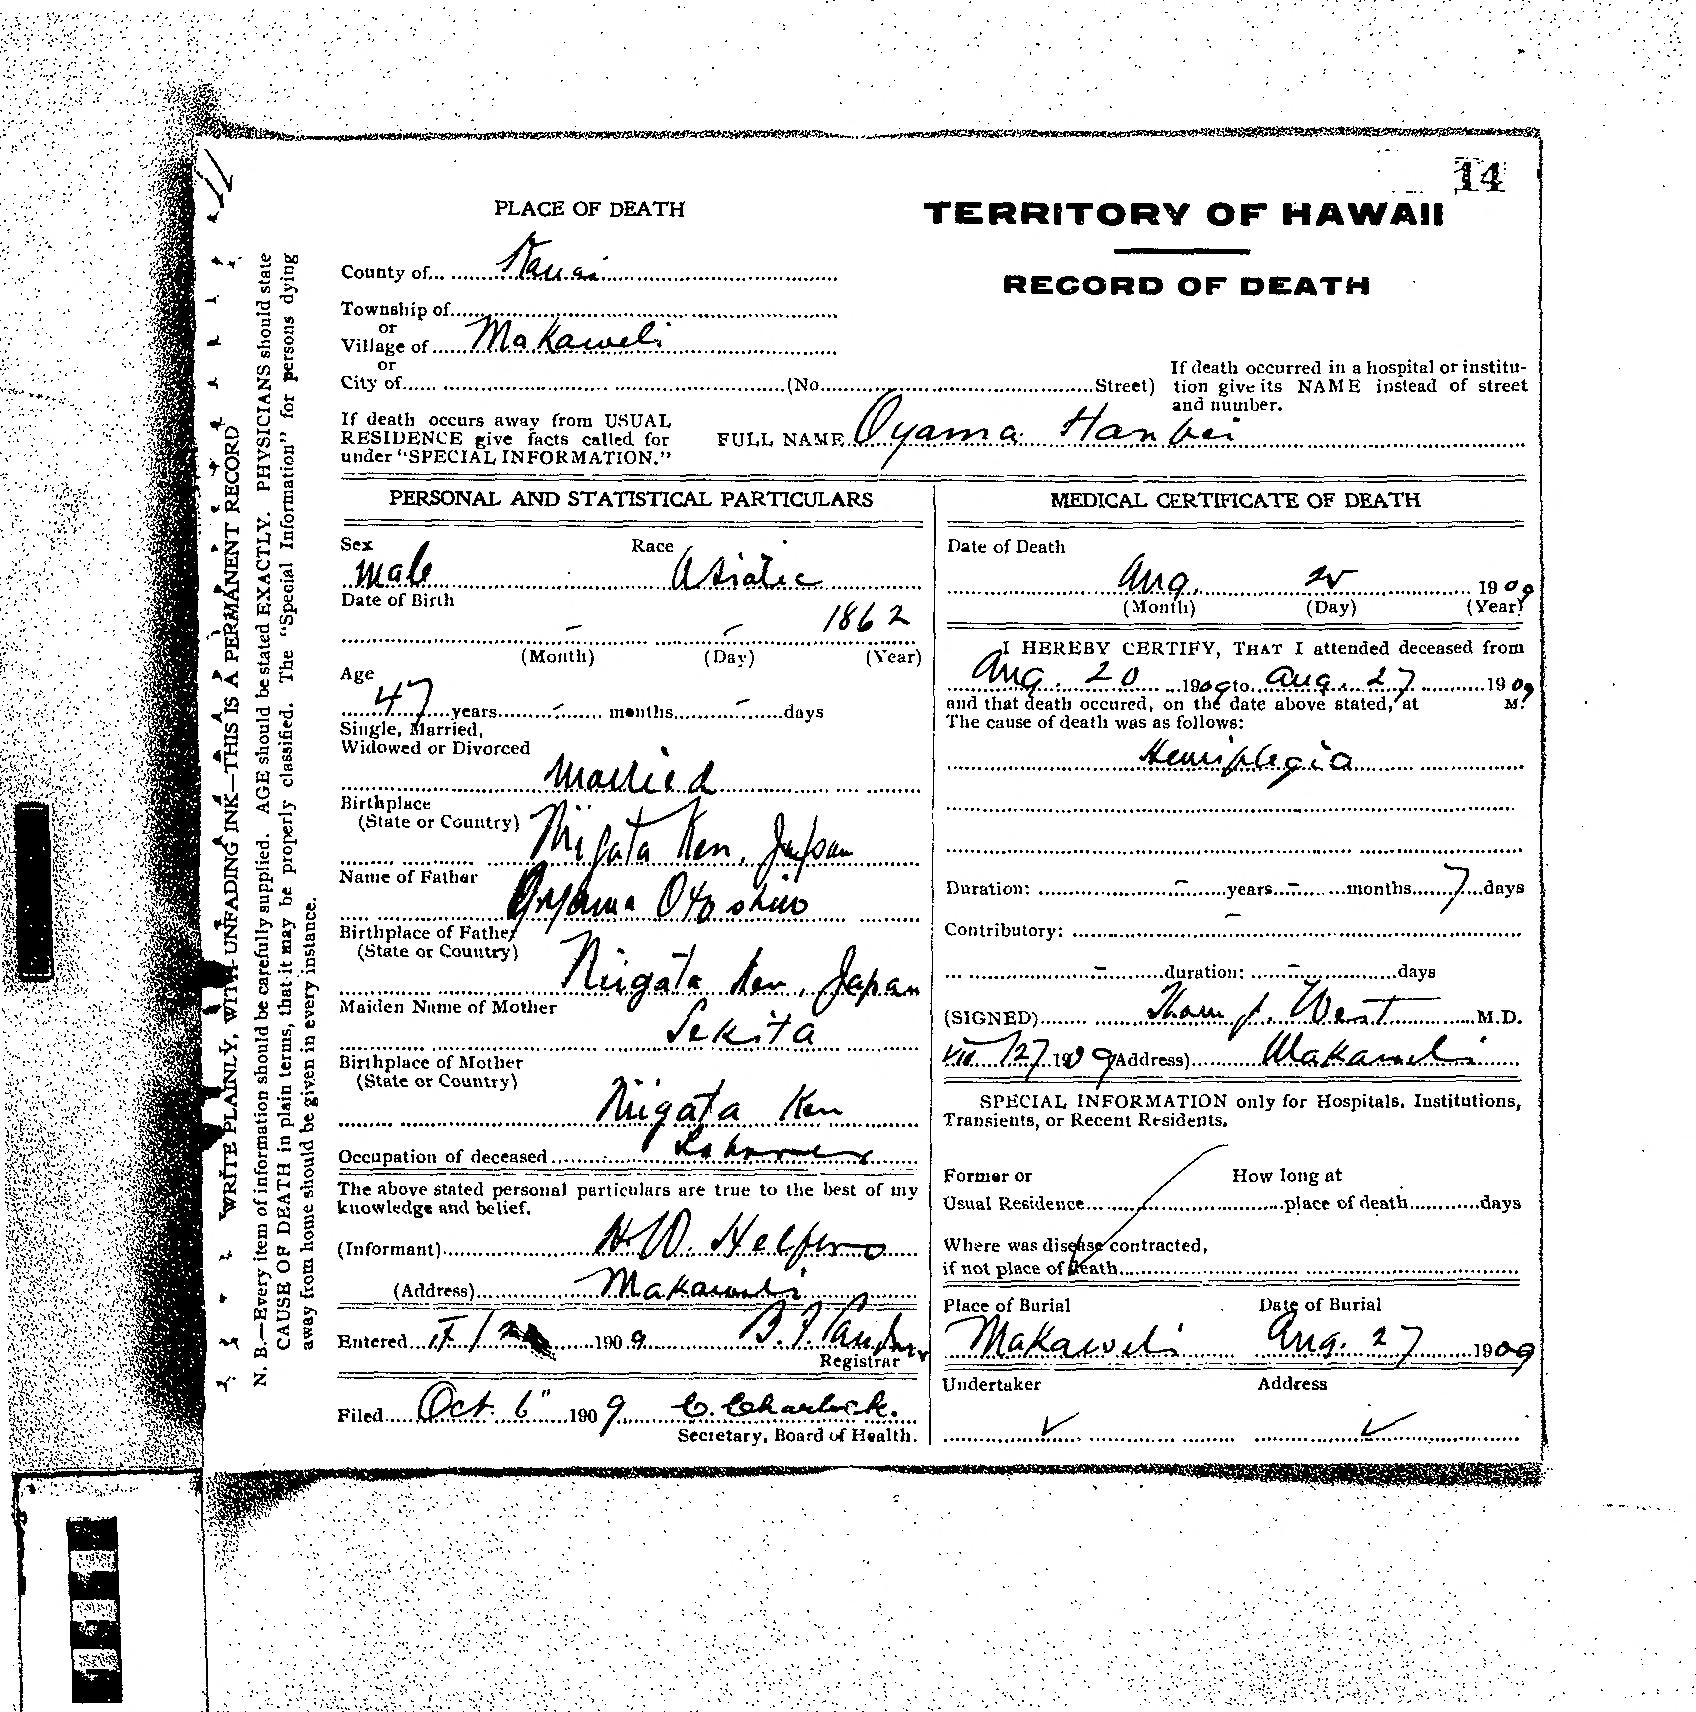 14
PLACE OF DEATH
TERRITORY OF HAWAII
RECORD OF DEATH
County of Kauai
Township of
or
Village of Makaweli
or
City of (No. Street)
If death occurred in a hospital or institution give its NAME instead of street and number.
If death occurs away from USUAL
RESIDENCE give facts called for
under "SPECIAL INFORMATION."
FULL NAME Oyama Hanbei
PERSONAL AND STATISTICAL PARTICULARS
Sex Race
Male Asiatic
Date of Birth
- - 1862
(Month) (Day) (Year)
Age
47 years - months - days
Single, Married,
Widowed or Divorced
Married
Birthplace
(State or Country)
Niigata Ken, Japan
Name of Father
Oyama
Birthplace of Father
(State or Country)
Niigata Ken, Japan
Maiden Name of Mother
Sekita
Birthplace of Mother
(State or Country)
Niigata Ken
Occupation of deceased Laborer
The above stated personal particulars are true to the best of my
knowledge and belief.
(Informant) H. W.
(Address) Makaweli
Entered 1909
Registrar
Filed Oct. 6" 1909 C. Charlock.
Secretary, Board of Health.
MEDICAL CERTIFICATE OF DEATH
Date of Death
Aug. 1909
(Month) (Day) (Year)
I HEREBY CERTIFY, THAT I attended deceased from
Aug. 20 1909 to Aug. 27 1909
and that death occured, on the date above stated, at M.
The cause of death was as follows:
Hemiplegia
Duration: - years - months 7 days
Contributory: -
- duration: - days
(SIGNED) West M.D.
27 1909 (Address) Makaweli
SPECIAL INFORMATION only for Hospitals, Institutions,
Transients, or Recent Residents.
Former or How long at
Usual Residence place of death days
Where was disease contracted,
if not place of death
Place of Burial Date of Burial
Makaweli Aug. 27 1909
Undertaker Address
WRITE PLAINLY, WITH UNFADING INK—THIS IS A PERMANENT RECORD
N. B.—Every item of information should be carefully supplied. AGE should be stated EXACTLY. PHYSICIANS should state
CAUSE OF DEATH in plain terms, that it may be properly classified. The "Special Information" for persons dying
away from home should be given in every instance.